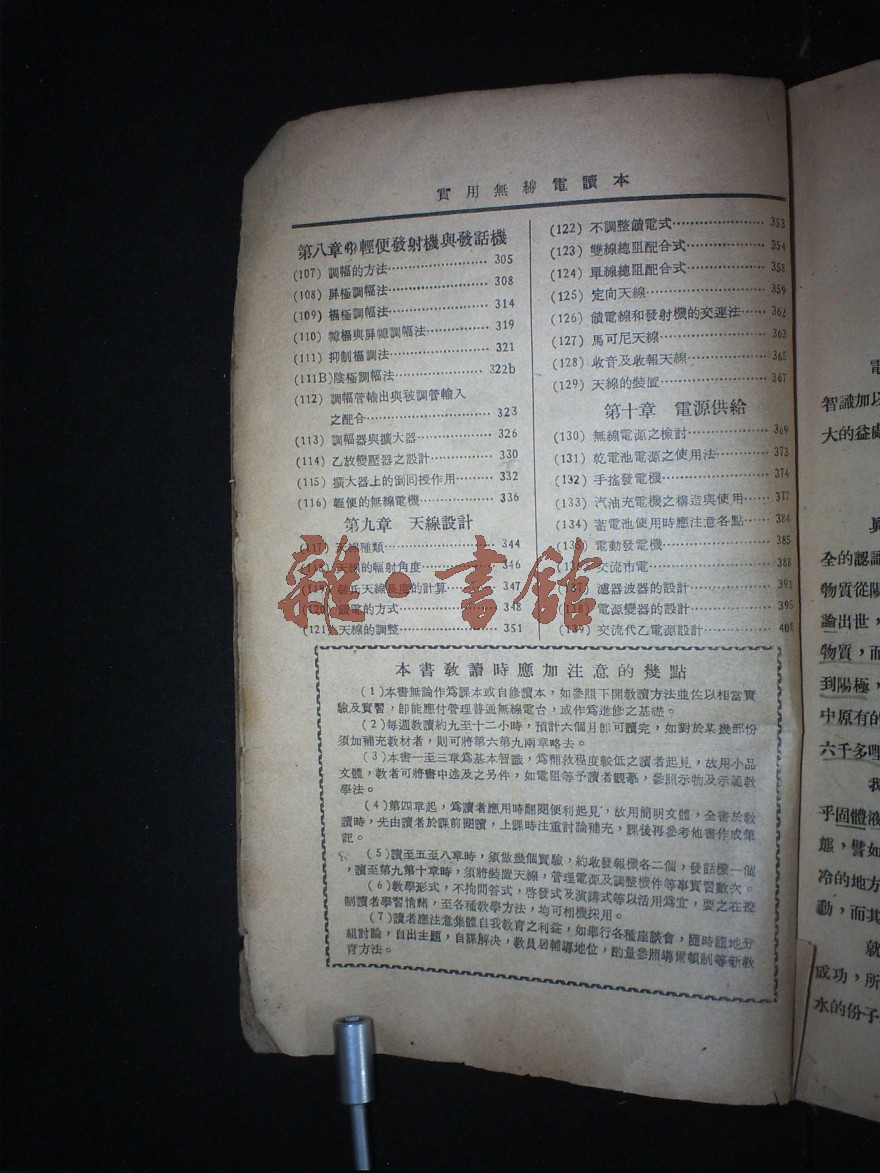 實用無線電讀本
第八章 輕便發射機與發話機
(107) 調幅的方法…………305
(108) 屏極調幅法…………308
(109) 柵極調幅法…………314
(110) 幛柵與屏幛調幅法…………319
(111) 抑制柵調法…………321
(111B)陰極調幅法…………322b
(112) 調幅管輸出與被調管輸入
之配合…………323
(113) 調幅器與擴大器…………326
(114) 乙放變壓器之設計…………330
(115) 擴大器上的倒回授作用…………332
(116) 輕便的無線電機…………336
第九章 天線設計
(117) 天線種類…………344
(118) 天線的輻射角度…………346
(119) 赫氏天線長度的計算…………347
(120) 饋電的方式…………348
(121) 天線的調整…………351
(122) 不調整饋電式…………353
(123) 雙線總阻配合式…………354
(124) 單線總阻配合式…………358
(125) 定向天線…………359
(126) 饋電線和發射機的交連法…………362
(127) 馬可尼天線…………363
(128) 收音及收報天線…………365
(129) 天線的裝置…………367
第十章 電源供給
(130) 無線電源之檢討…………369
(131) 乾電池電源之使用法…………373
(132) 手搖發電機…………374
(133) 汽油充電機之構造與使用…………377
(134) 蓄電池使用時應注意各點…………384
(135) 電動發電機…………385
(136) 交流市電…………388
(137) 濾器波器的設計…………391
(138) 電源變器的設計…………395
(139) 交流代乙電源設計…………400
雜·書館
本書教讀時應加注意的幾點
(1)本書無論作爲課本或自修讀本,如參照下開教讀方法並佐以相當實
驗及實習,卽能應付管理普通無線電台,或作爲進修之基礎。
(2)每週教讀約九至十二小時,預計六個月卽可讀完,如對於某幾部份
須加補充教材者,則可將第六第九兩章略去。
(3)本書一至三章爲基本智識,爲開敎程度較低之讀者起見,故用小品
文體,教者可將書中述及之另件,如電阻等予讀者觀摹,參照示物及示範教
學法。
(4)第四章起,爲讀者應用時翻閱便利起見,故用簡明文體,全書於教
讀時,先由讀者於課前閱讀,上課時注重討論補充,課後再參考他書作成筆
記。
(5)讀至五至八章時,須做幾個實驗,約收發報機各二個,發話機一個
,讀至第九第十章時,須將裝置天線,管理電源及調整機件等事實習數次。
(6)教學形式,不拘問答式,啓發式及演講式等以活用爲宜,要之在控
制讀者學習情緒,至各種教學方法,均可相機採用。
(7)讀者應注意集體自我教育之利益,如舉行各種座談會,隨時隨地分
組討論,自出主題,自謀解決,教員居輔導地位,酌量參照導爾頓制等新教
育方法。
電
智識加以
大的益處
眞
全的認識
物質從陽
論出世,
物質,而
到陽極,
中原有的
六千多哩
我
乎固體液
態,譬如
冷的地方
動,而北
就
成功,所
水的份子